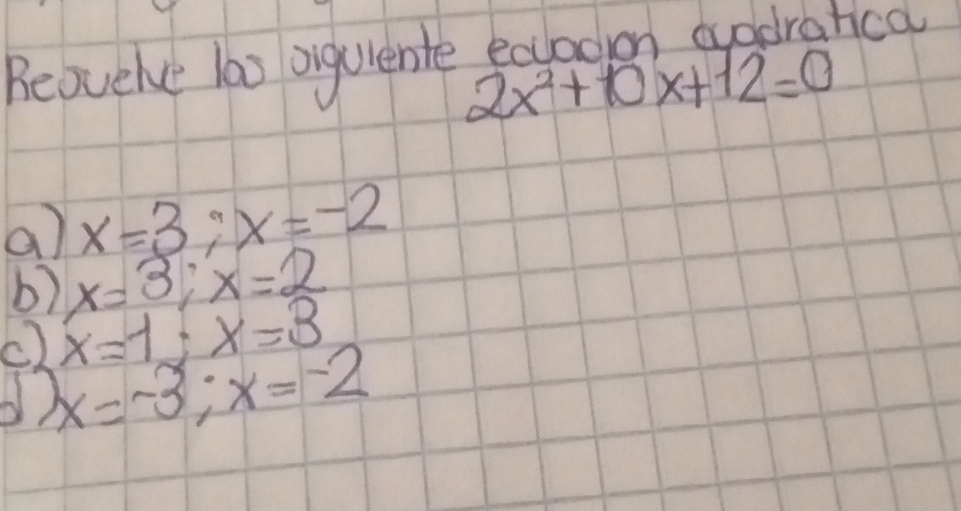 Resuelve las siguiente ecuacion cuadratica
2x²+10x+12=0
a) x=3 ; x=-2
b) x=3 ; x=2
c) x=1 ; x=3
d) x=-3 ; x=-2